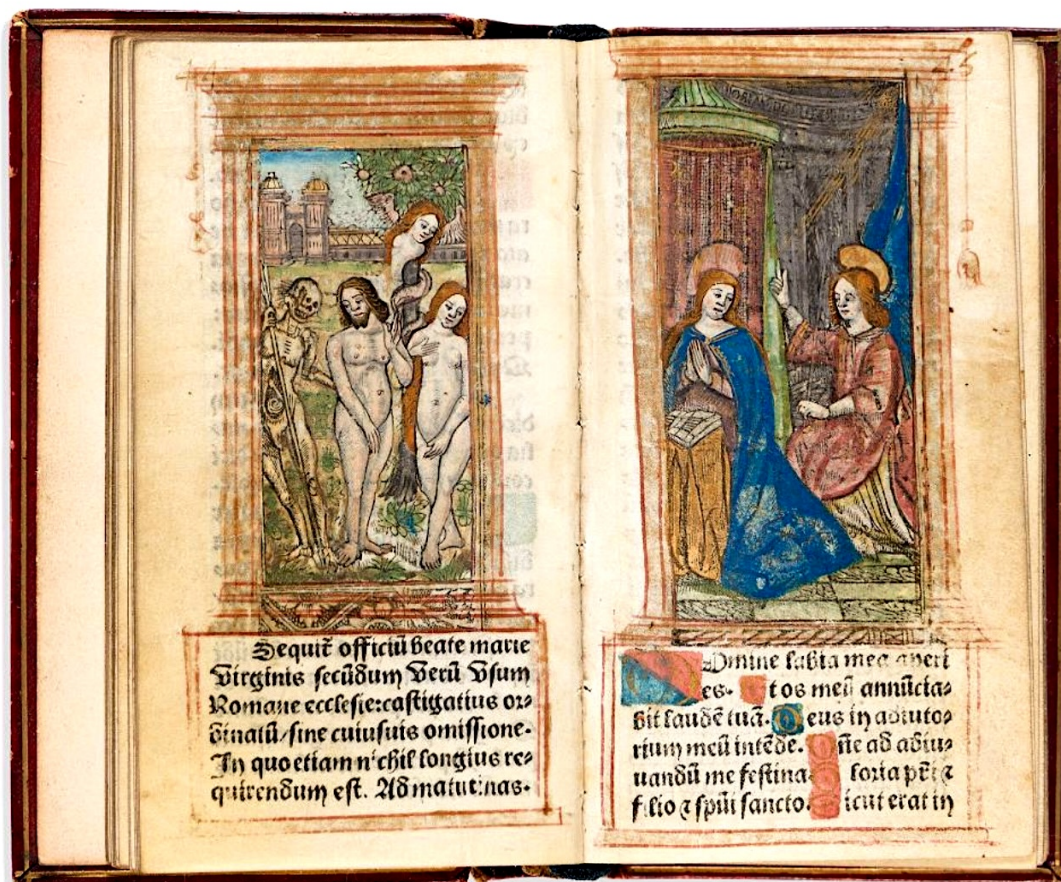 Sequit̃ officiũ beate marie
Virginis secũdum verũ vsum
Romane ecclesie: castigatius or-
dinatũ / sine cuiusuis omissione.
In quo etiam nichil longius re-
quirendum est. Ad matutinas.
Omine labia mea aperi
es. Et os meũ annũcia-
bit laudẽ tuã. Deus in adiuto-
rium meũ intẽde. Dñe ad adiu-
uandũ me festina. Gloria pr̃i ⁊
filio ⁊ spũi sancto. Sicut erat in